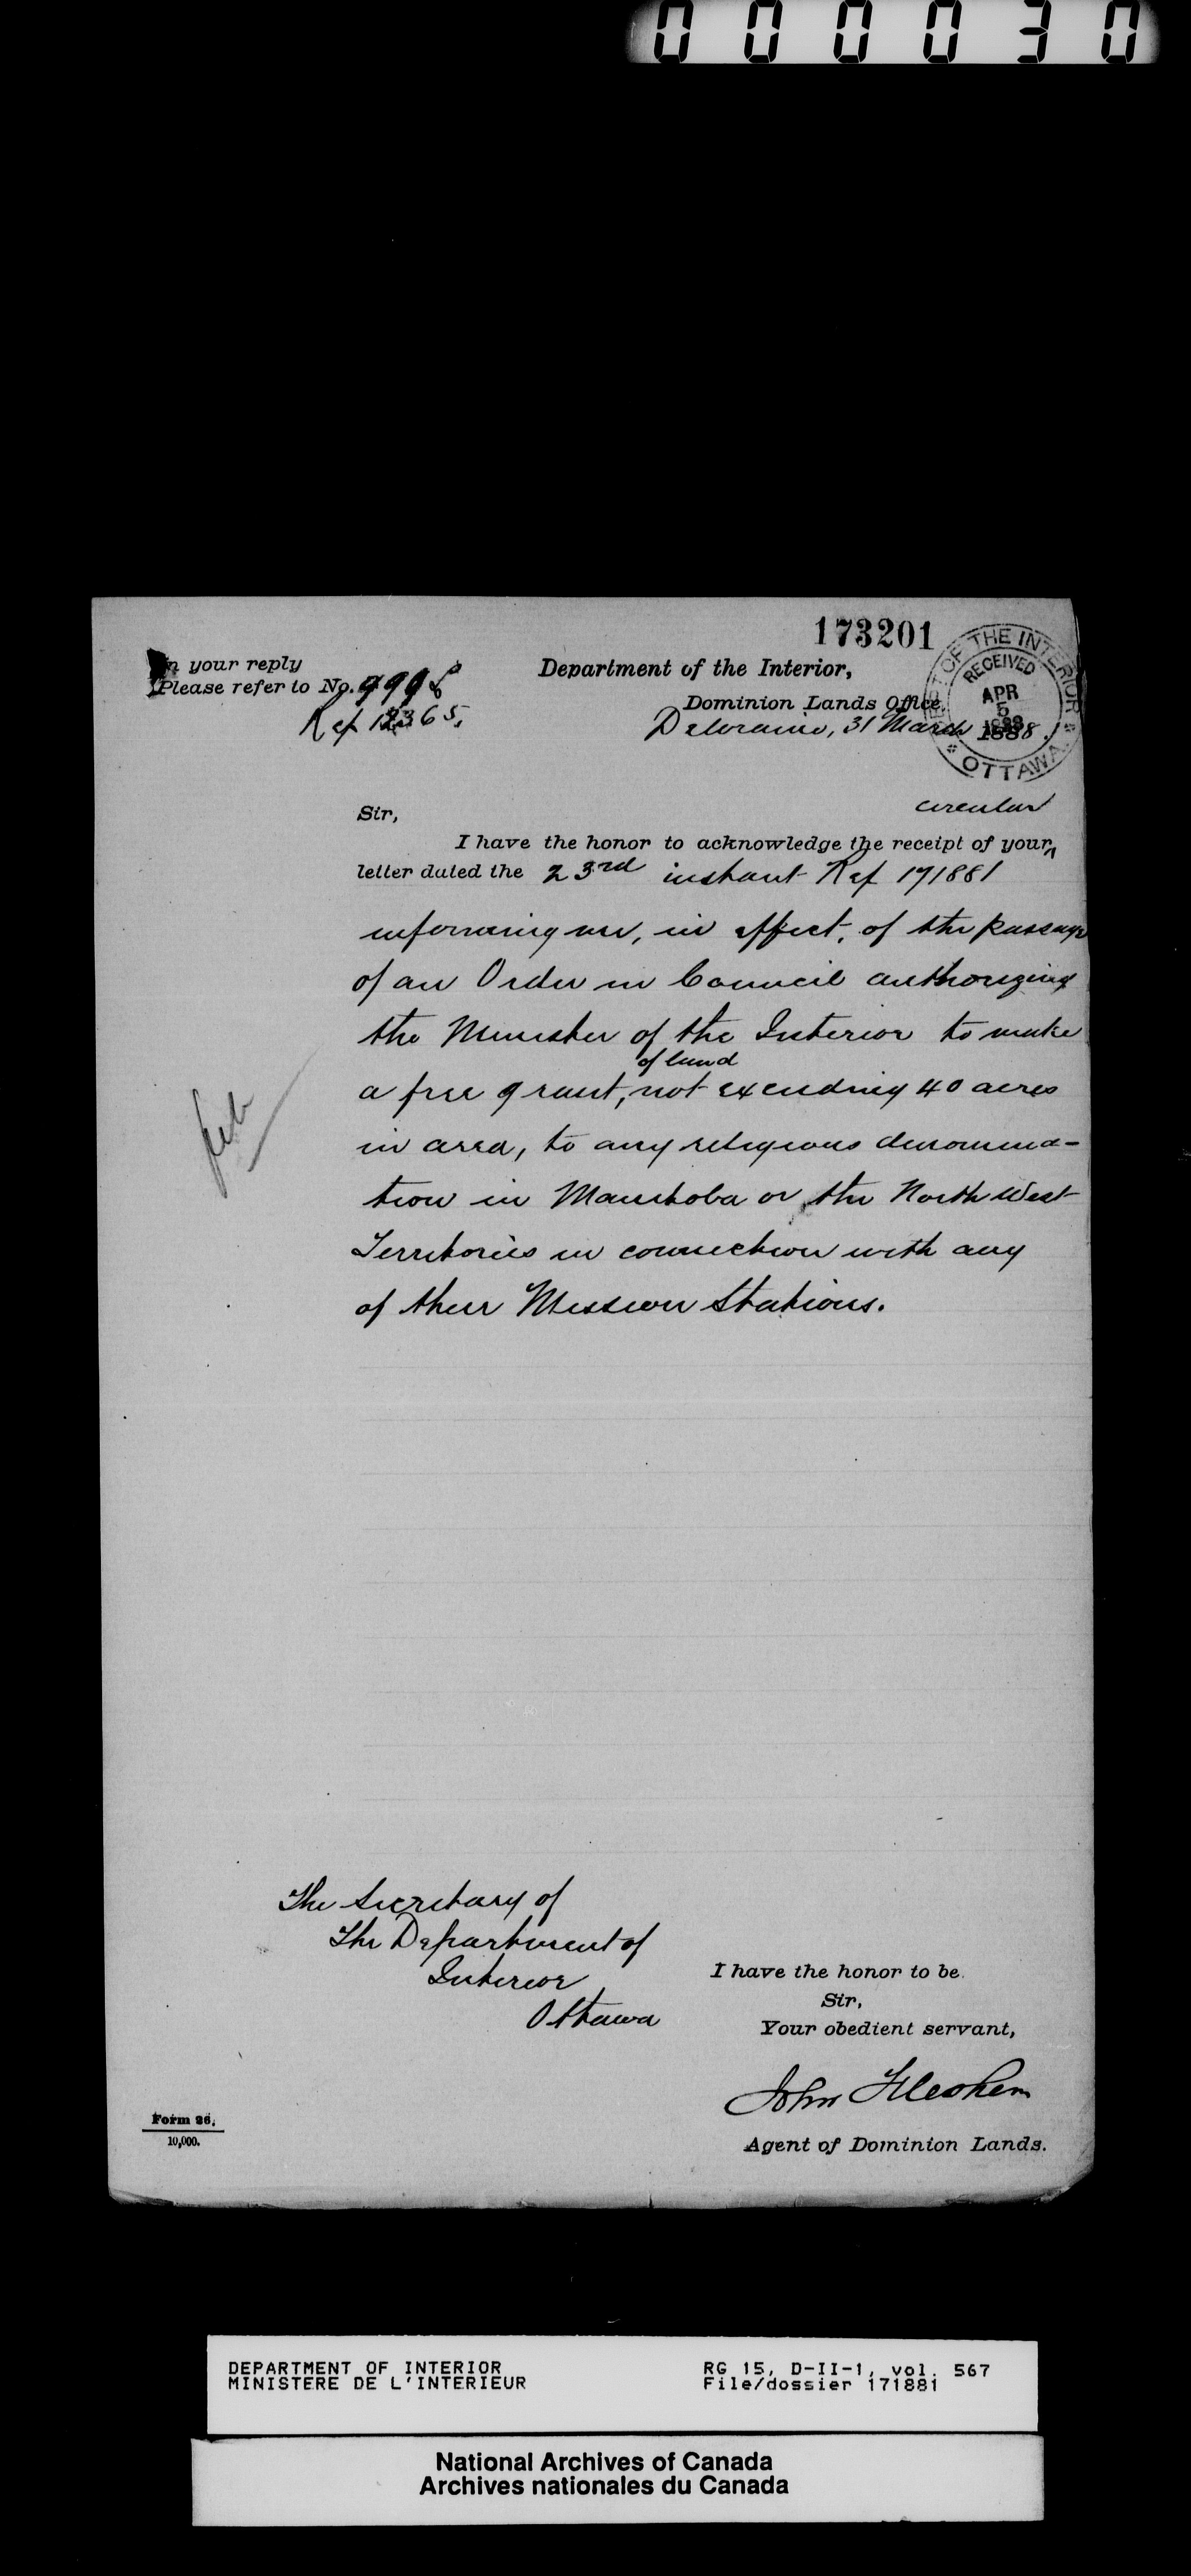 000030
173201
In your reply
Please refer to No. 9998
Ref 12365.
Department of the Interior,
Dominion Lands Office,
Deloraine, 31 March 1888.
DEPT OF THE INTERIOR
RECEIVED
APR
5
1888
OTTAWA
Sir,
circular
I have the honor to acknowledge the receipt of your
letter dated the 23rd instant Ref 171881
informing me, in effect, of the passage
of an Order in Council authorizing
the Minister of the Interior to make
of land
a free grant, not exceeding 40 acres
in area, to any religious denomina-
tion in Manitoba or the North West
Territories in connection with any
of their Mission Stations.
The Secretary of
The Department of
Interior
Ottawa
I have the honor to be
Sir,
Your obedient servant,
John Flesher
Agent of Dominion Lands.
Form 26.
10,000.
DEPARTMENT OF INTERIOR
MINISTERE DE L'INTERIEUR
RG 15, D-II-1, vol. 567
File/dossier 171881
National Archives of Canada
Archives nationales du Canada